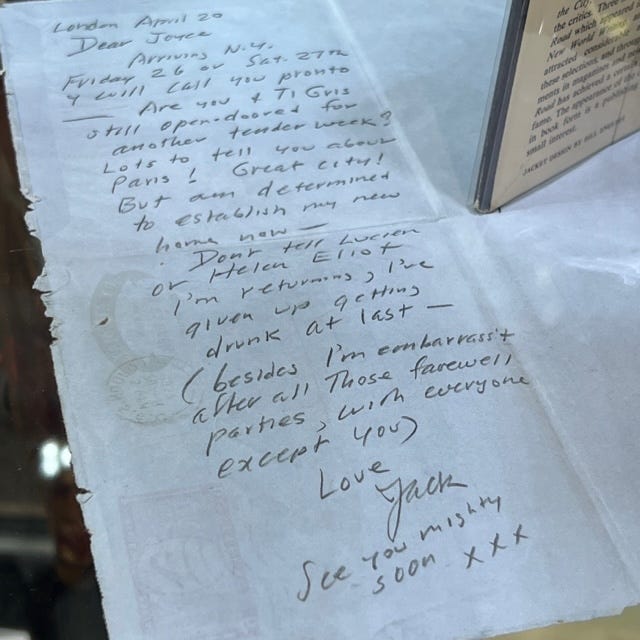 London April 20
Dear Joyce
Arriving N.Y.
Friday 26 or Sat. 27th
& will call you pronto
— Are you & Ti Gris
still open-doored for
another tender week?
Lots to tell you about
Paris! Great City!
But am determined
to establish my new
home now —
Don't tell Lucien
or Helen Eliot
I'm returning, I've
given up getting
drunk at last —
(besides I'm embarrass't
after all those farewell
parties, with everyone
except you)
Love
Jack
See you mighty
soon. xxx
the critic
Road which
New World
attracted
selections
Road has
in book form
small interest.
JACKET DESIGN BY BILL